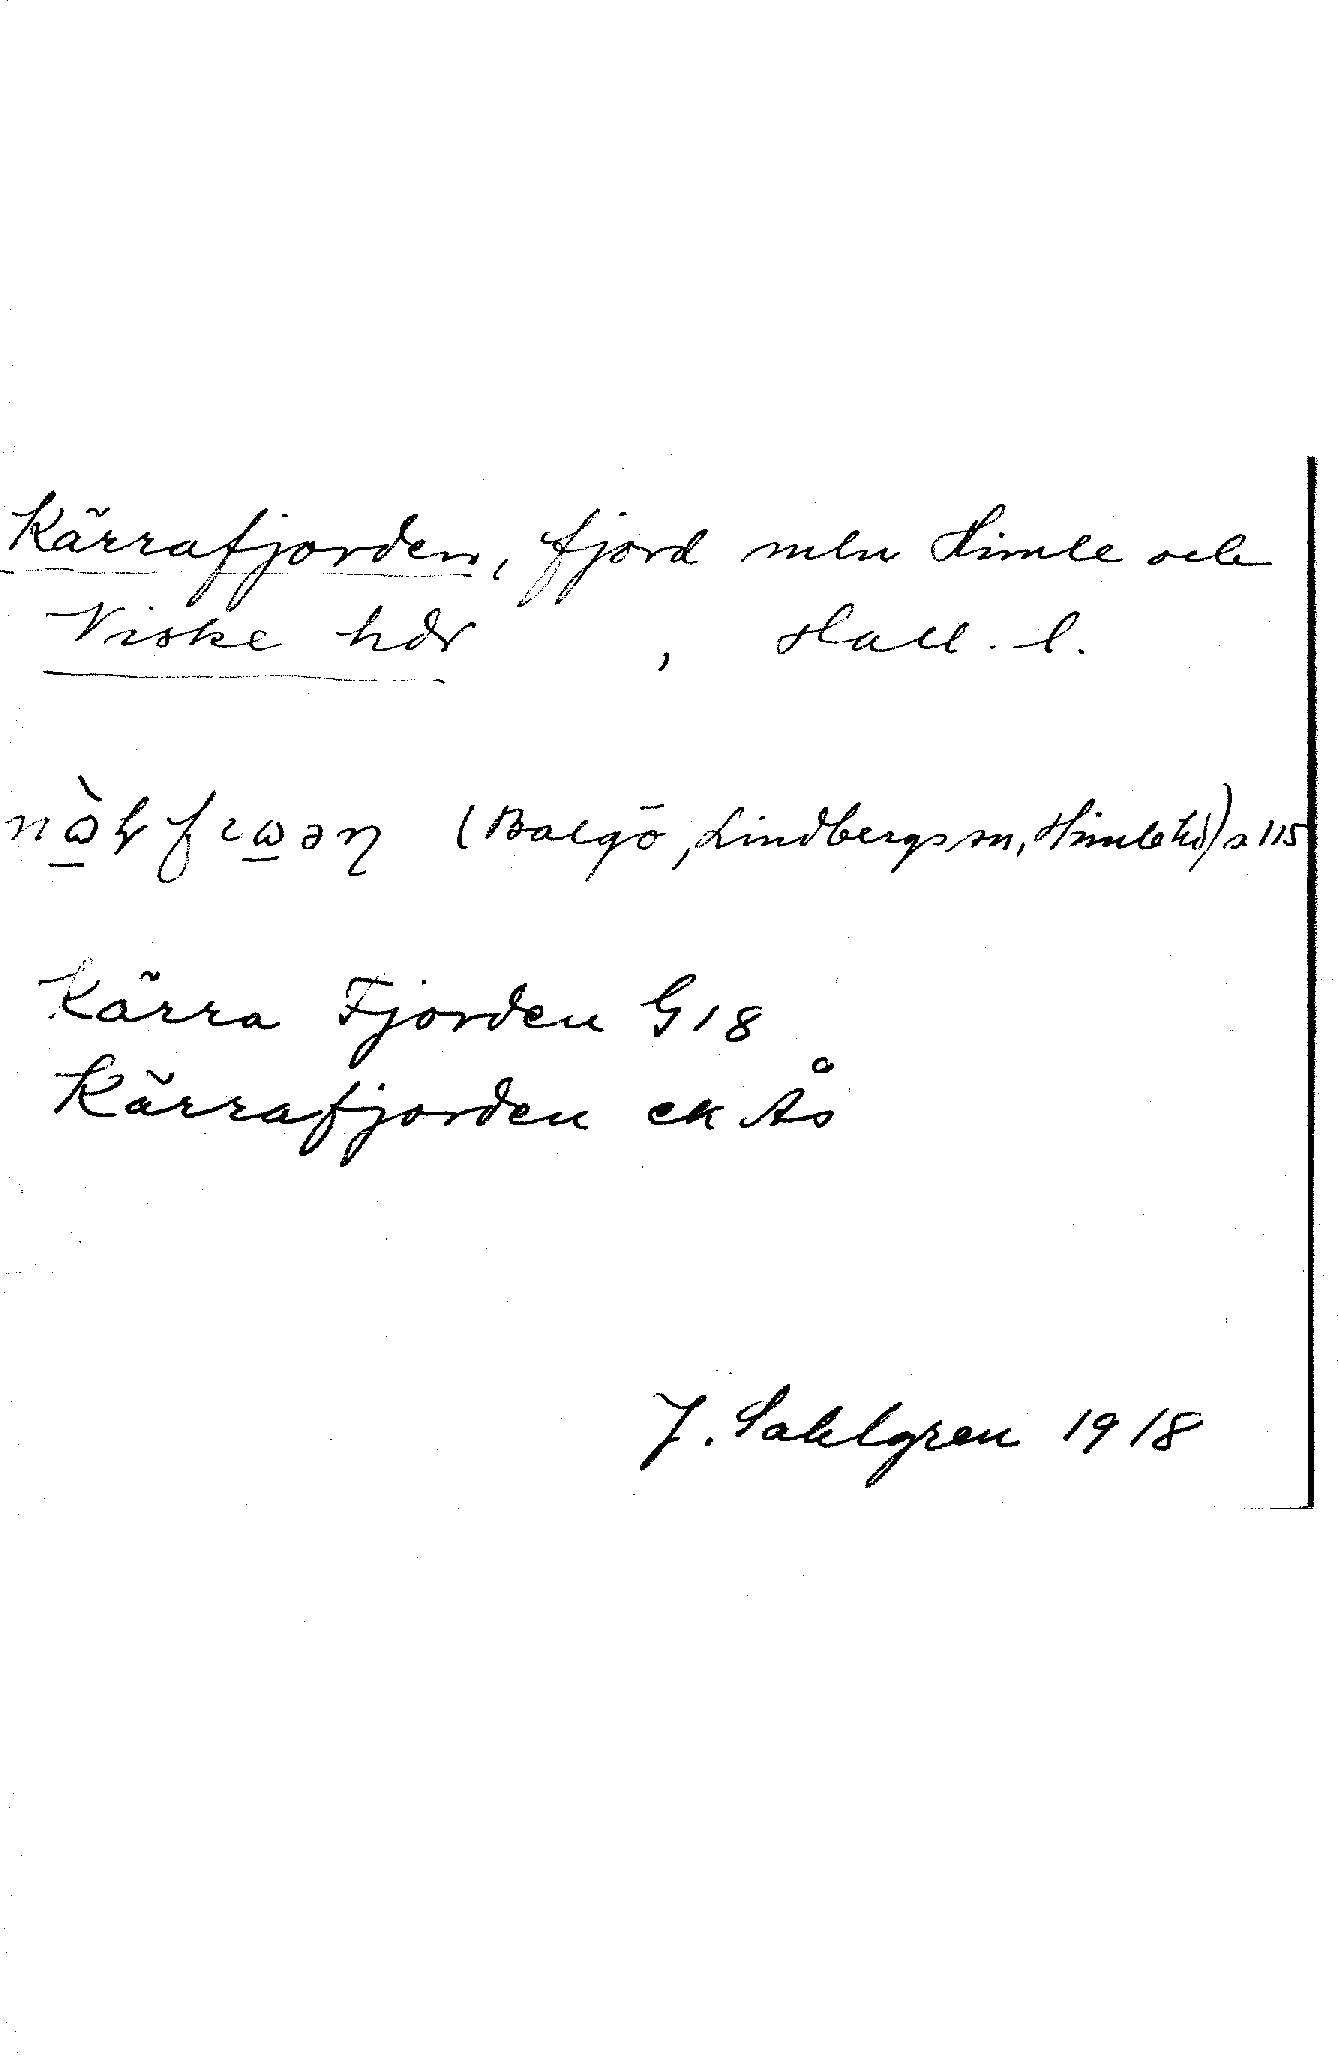 Kärrafjorden, fjord mln Himle och
Viske hdr , Hall. l.
(Balgö, Lindbergs sn, Himle hd) s 115
Kärra Fjorden G 18
Kärrafjorden ek Ås
J. Sahlgren 1918